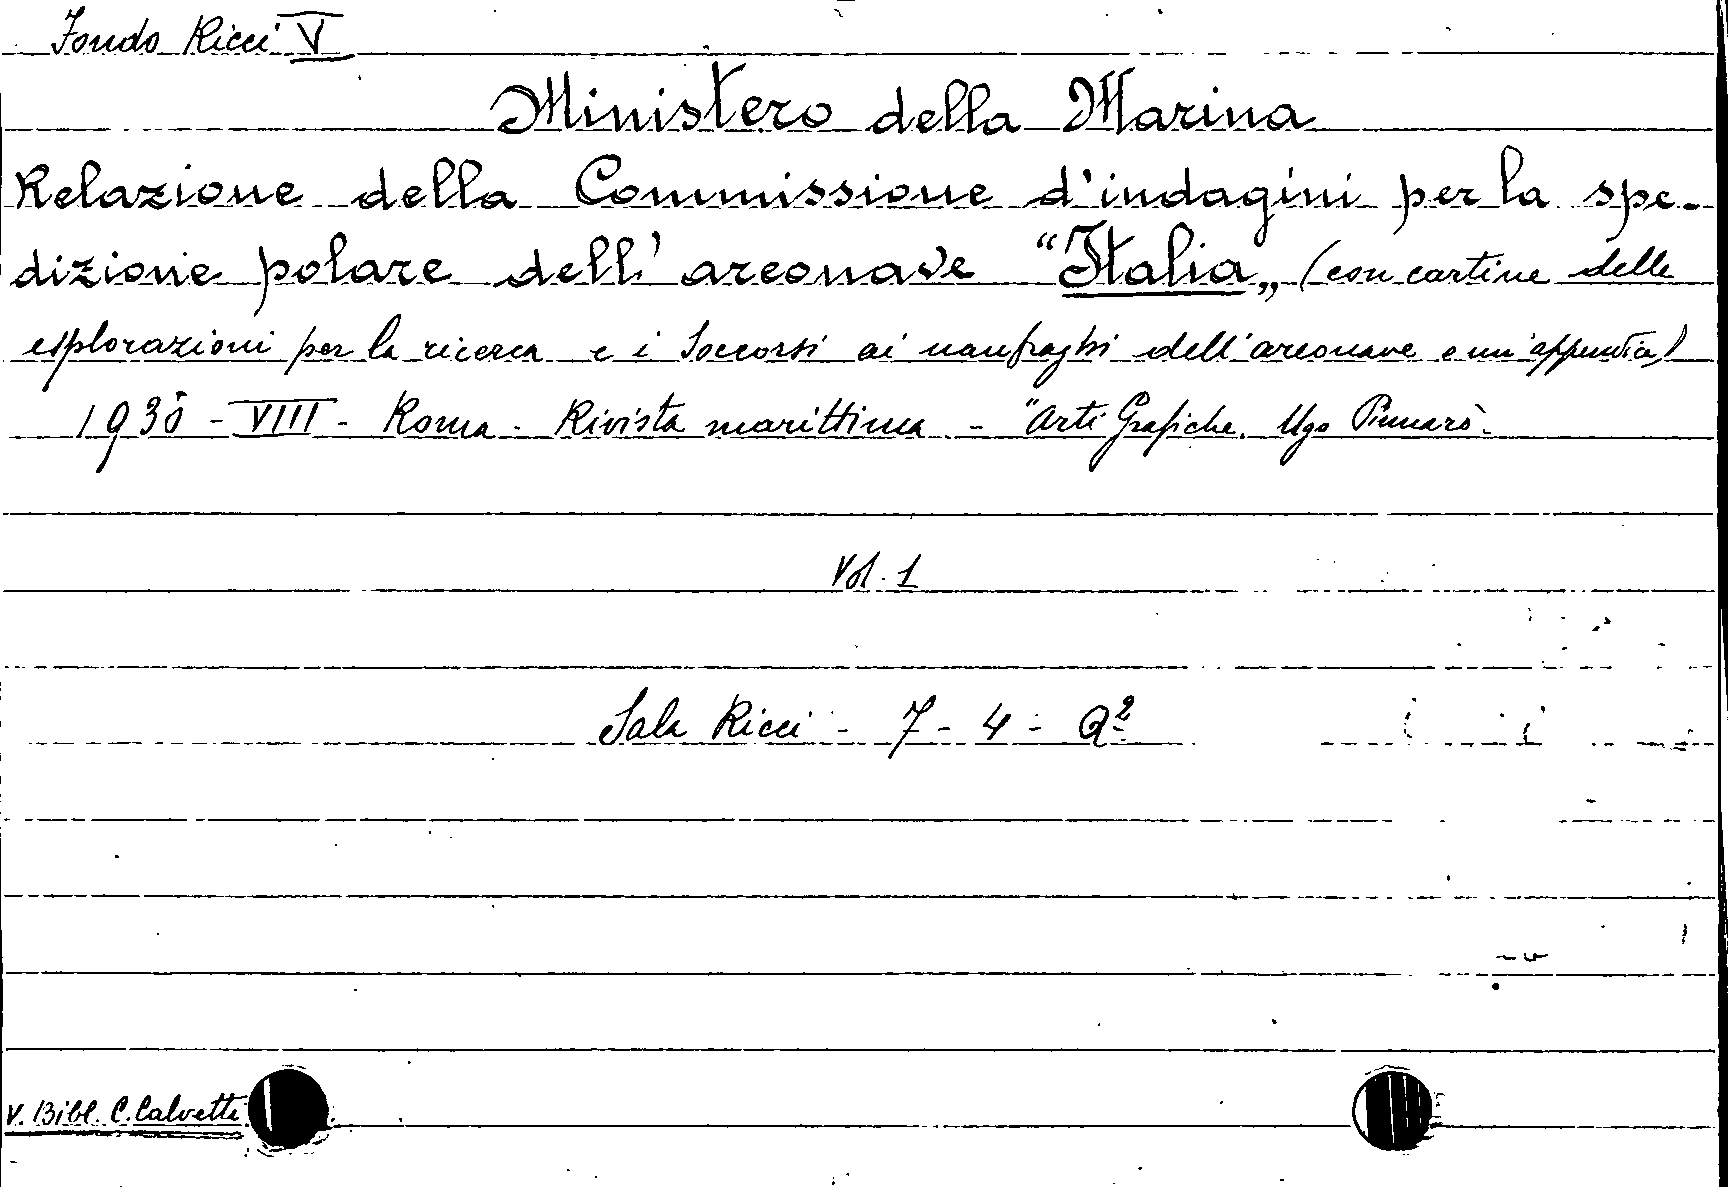 Fondo Ricci V
Ministero della Marina
Relazione della Commissione d'indagini per la spe-
dizione polare dell' areonave "Italia„ (con cartine delle
esplorazioni per la ricerca e i soccorsi ai naufraghi dell'areonave e un'appendice)
1930 - VIII - Roma - Rivista marittima - "Arti Grafiche. Ugo Pinnarò.
Vol. 1
Sala Ricci - 7 - 4 - Q²
V. Bibl. C. Calvetti